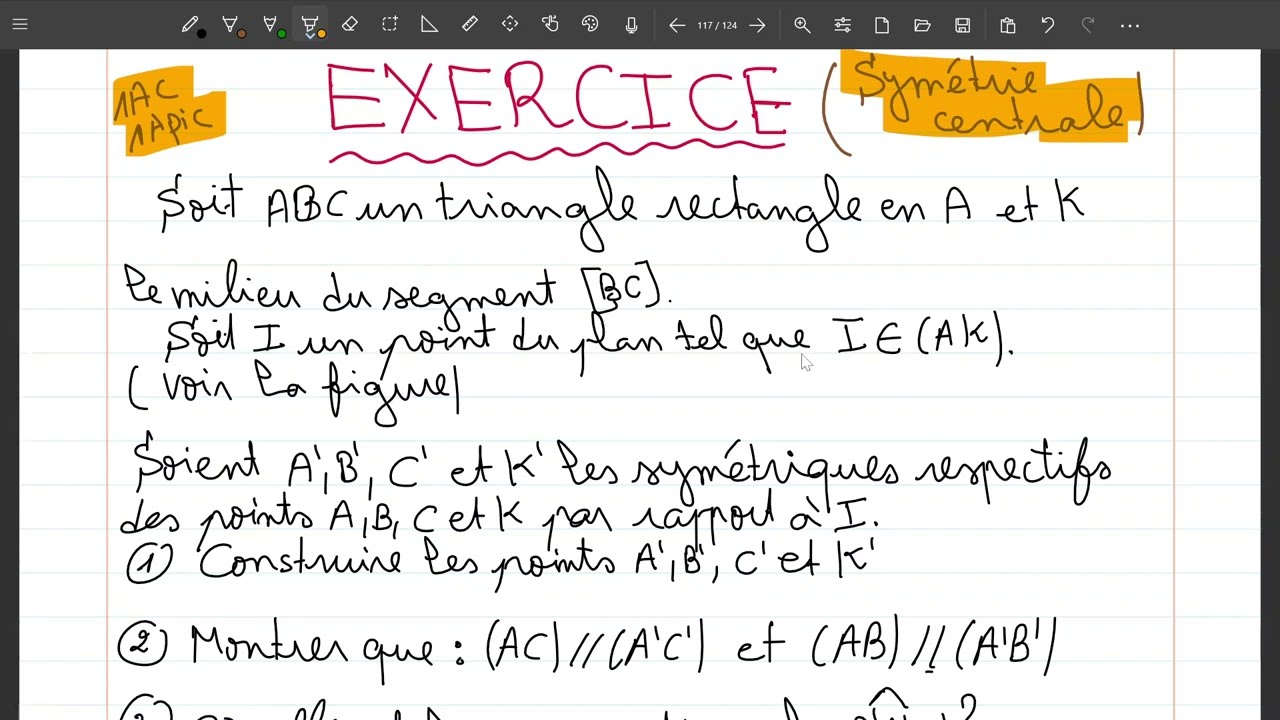 117 / 124
1AC
1APIC
EXERCICE (Symétrie centrale)
Soit ABC un triangle rectangle en A et K
le milieu du segment [BC].
Soit I un point du plan tel que I ∈ (AK).
( voir la figure)
Soient A', B', C' et K' les symétriques respectifs
des points A, B, C et K par rapport à I.
① Construire les points A', B', C' et K'
② Montrer que : (AC) // (A'C') et (AB) // (A'B')